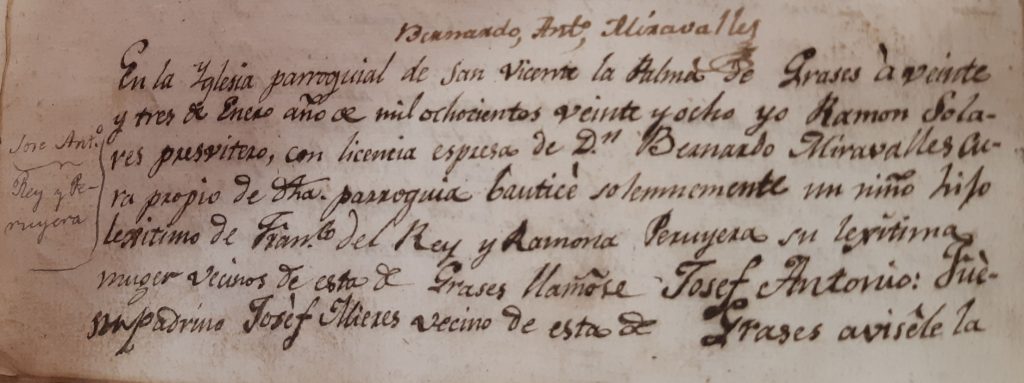 Bernardo, Antº, Miravalles
En la Yglesia parroquial de San Vicente la Palma de Grases à veinte
y tres de Enero año de mil ochocientos veinte y ocho yo Ramon Sola-
res presvitero, con licencia espresa de D.n Bernardo Miravalles Cu-
ra propio de dha. parroquia bauticè solemnemente un niño hijo
lexitimo de Fran.co del Rey y Ramona Peruyera su lexitima
muger vecinos de esta de Grases llamòse Josef Antonio: Fuè-
su padrino Josèf Mieres vecino de esta de Grases avisèle la
Jose Ant.º
Rey y Pe-
ruyera